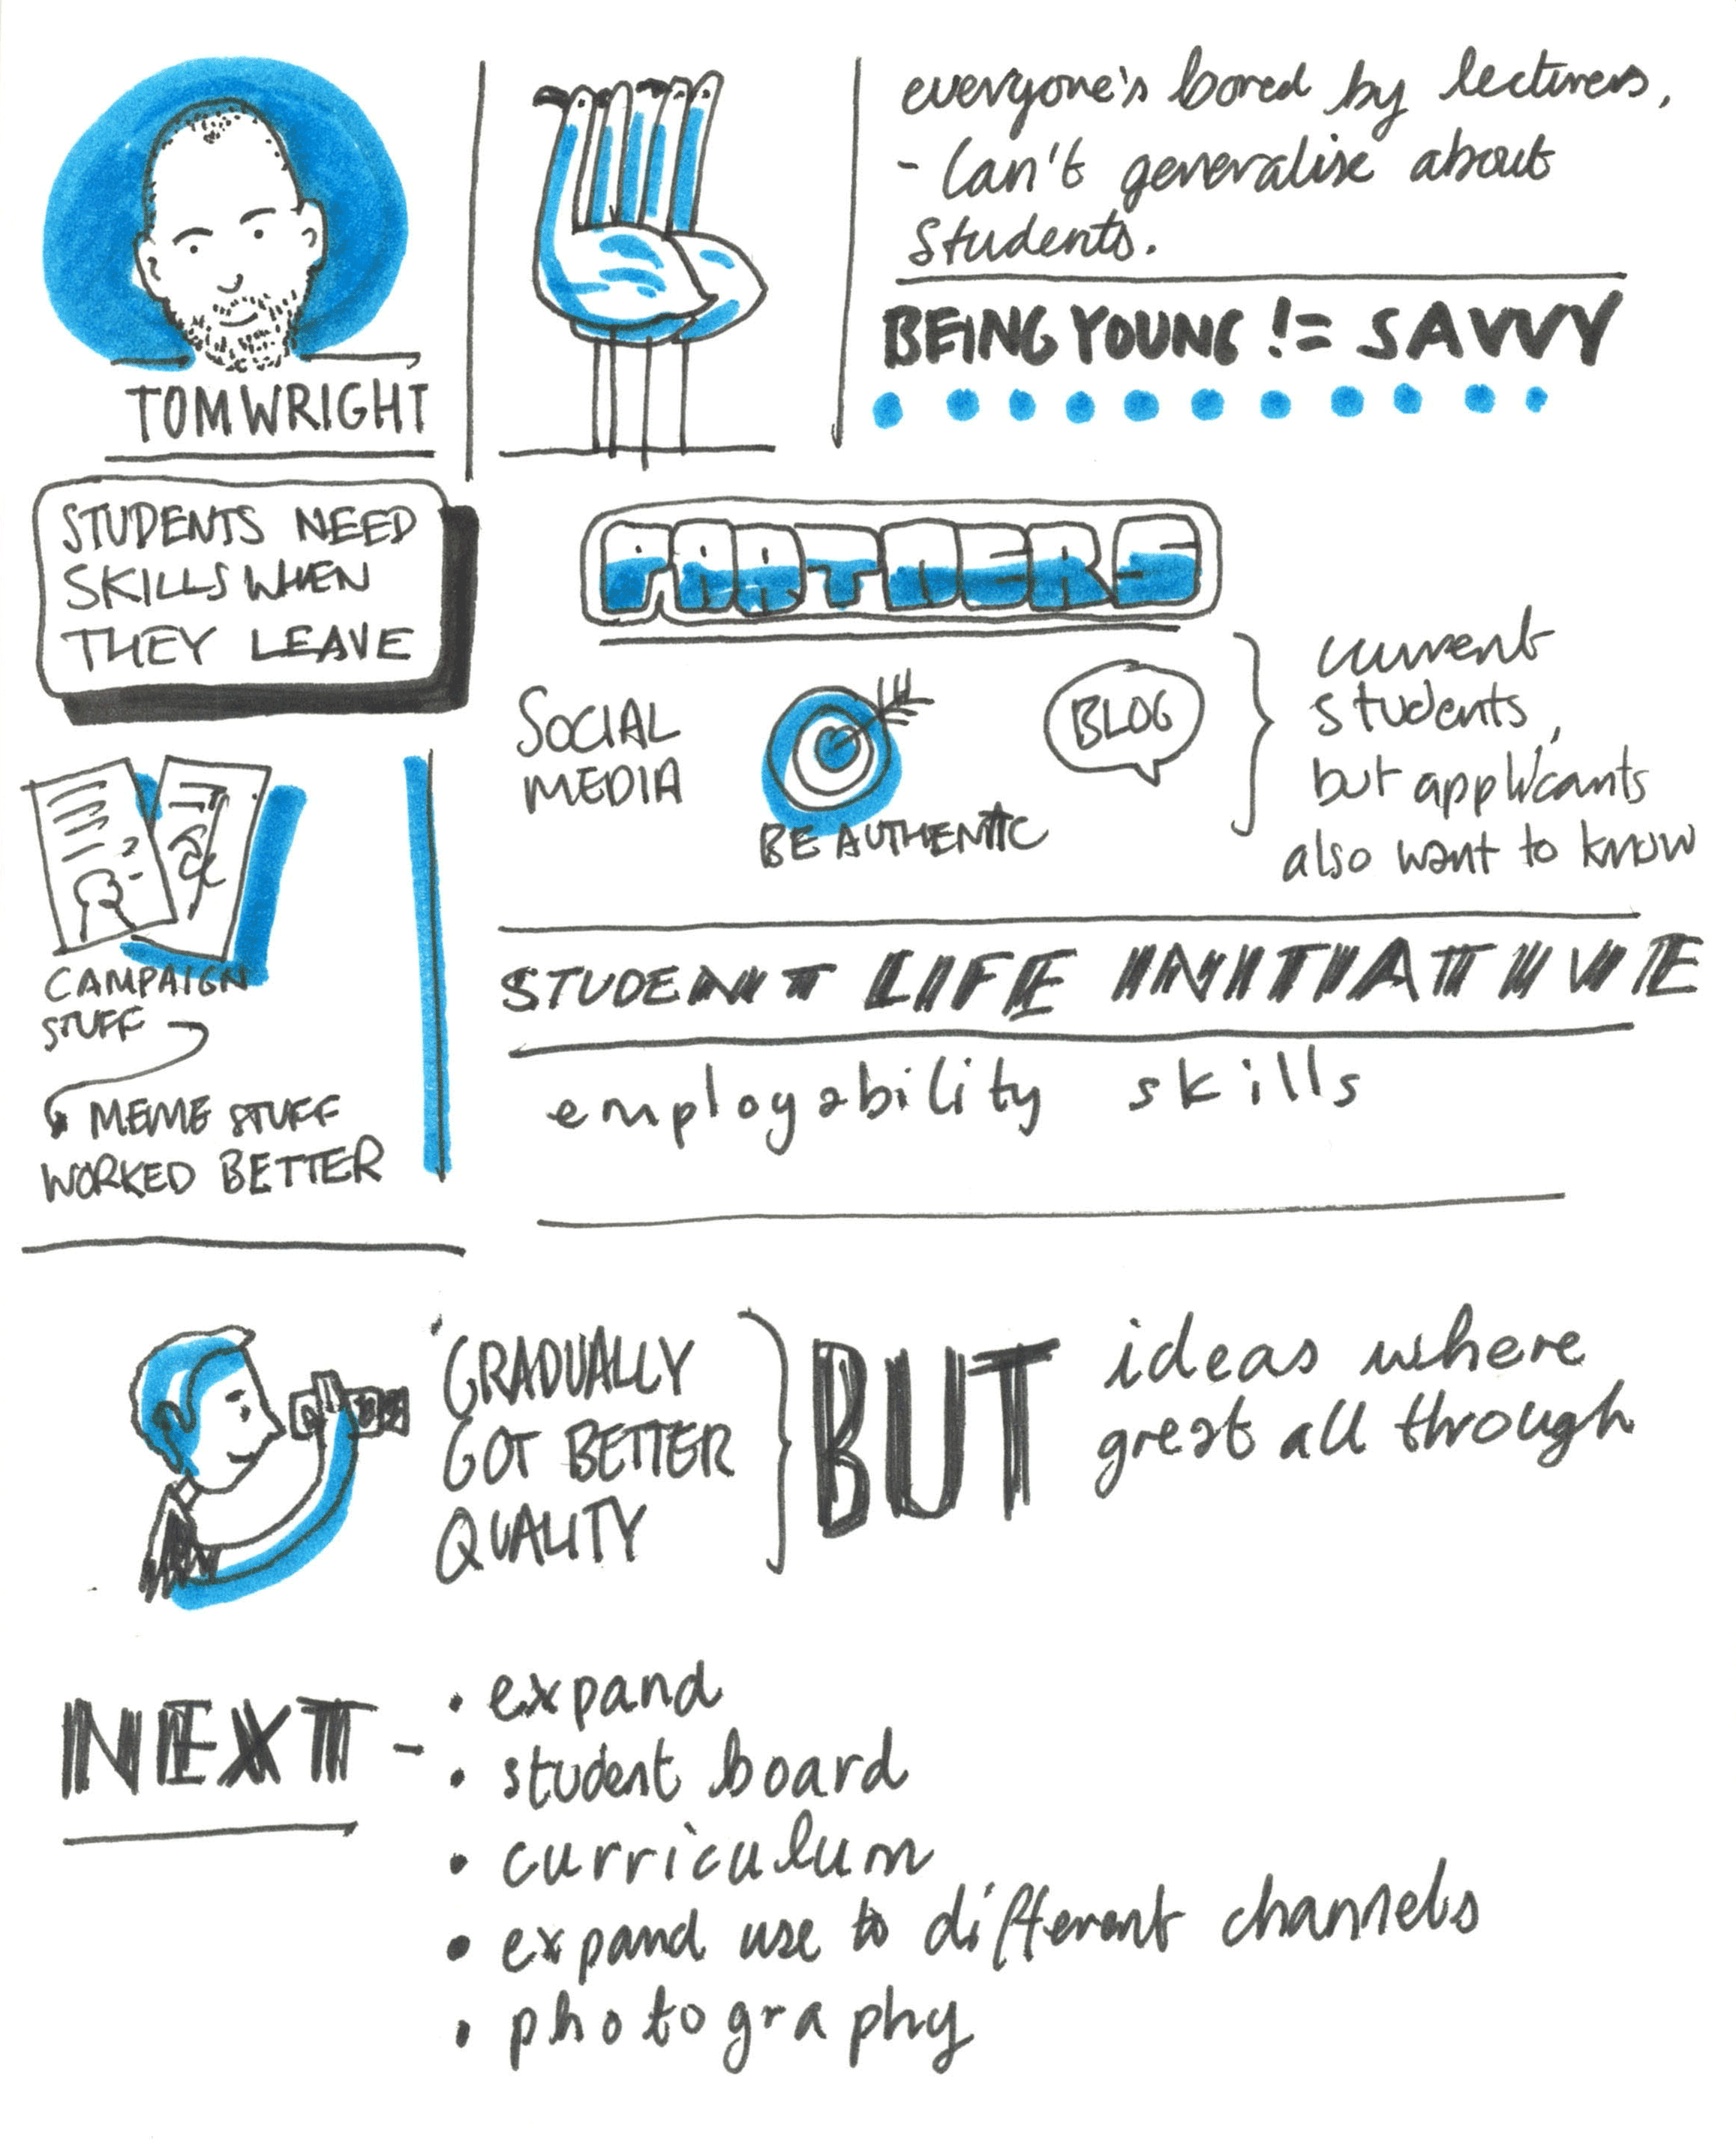 TOM WRIGHT
everyone's bored by lecturers,
- Can't generalise about
Students.
BEING YOUNG != SAVVY
STUDENTS NEED
SKILLS WHEN
THEY LEAVE
PARTNERS
SOCIAL
MEDIA
BE AUTHENTIC
BLOG
current
students,
but applicants
also want to know
CAMPAIGN
STUFF
MEME STUFF
WORKED BETTER
STUDENT LIFE INITIATIVE
employability skills
'GRADUALLY
GOT BETTER
QUALITY
BUT
ideas where
great all through
NEXT -
• expand
• student board
• curriculum
• expand use to different channels
• photography